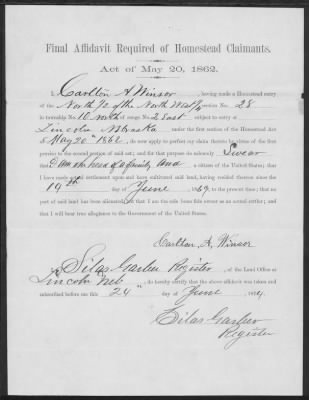 Final Affidavit Required of Homestead Claimants.
Act of May 20, 1862.
I, Carlton A Winsor, having made a Homestead entry
of the North ½ of the North West ¼ section No. 28
in township No. 10 North of range No. 2 East subject to entry at
Lincoln Nebraska under the first section of the Homestead Act
of May 20" 1862, do now apply to perfect my claim thereto by virtue of the first
proviso to the second section of said act; and for that purpose do solemnly Swear
that I am the head of a family and a citizen of the United States; that
I have made settlement upon and have cultivated said land, having resided thereon since the
19th day of June 1869, to the present time; that no
part of said land has been alienated, but that I am the sole bona fide owner as an actual settler; and
that I will bear true allegiance to the Government of the United States.
Carlton A. Winsor
I, Silas Garber Register, of the Land Office at
Lincoln Neb, do hereby certify that the above affidavit was taken and
subscribed before me this 24" day of June, 1874.
Silas Garber
Register